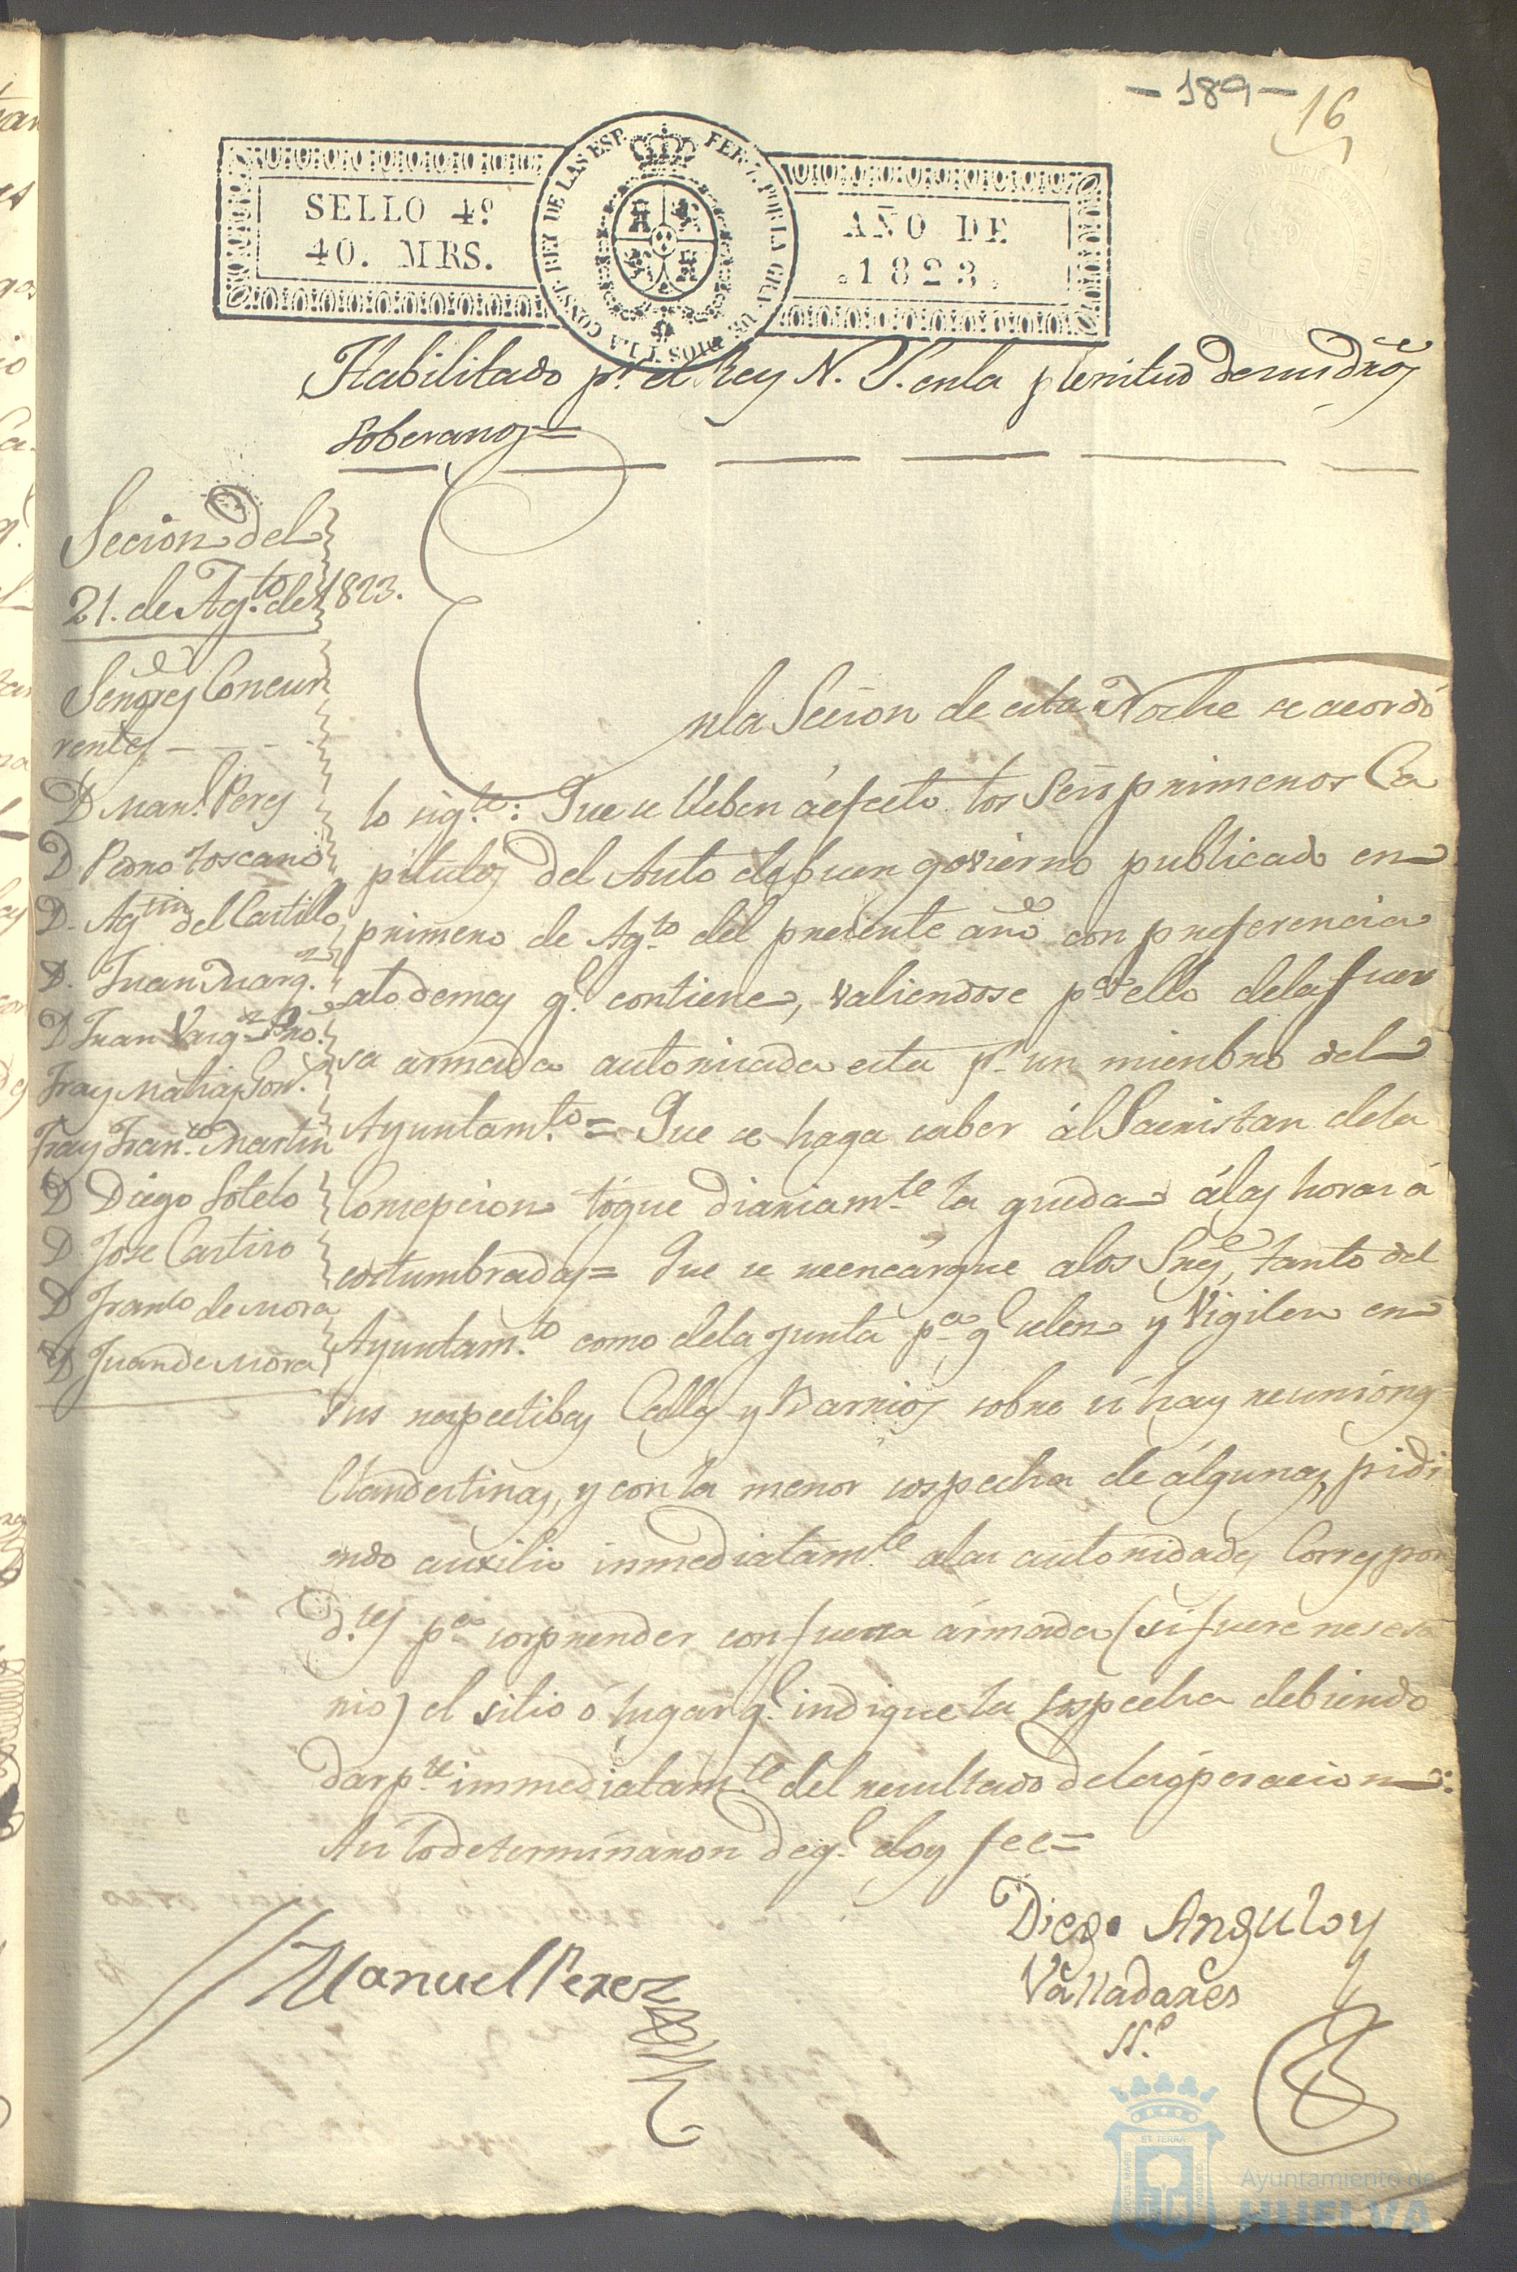 -189-
16
SELLO 4º
40. MRS.
FER. 7. POR LA GRA. DE DIOS Y LA CONST. REY DE LAS ESP.
AÑO DE
1823.
Habilitado pr. el Rey N. S. en la plenitud de sus dros
soberanos=
Secion del
21. de Agto. de 1823.
Señores Concur
rentes
D Manl. Peres
D. Pedro Toscano
D. Agtin del Castillo
D. Juan Marqz.
D Juan Vazqz
Fray Matias
Fray Franco. Martin
D Diego Sotelo
D. Jose Castiro
D Franco de Mora
D Juan de Mora
En la Secion de esta Noche se acordó
lo sigte: Que se lleben á efecto los seis primeros Ca
pitulos del Auto de buen govierno publicado en
primero de Agto del presente año con preferencia
a lo demas q. contiene, valiendose pa ello de la fuer
sa armada autorisada esta pr. un mienbro del
Ayuntamto = Que se haga saber ál Sacristan de la
Consepcion tóque diariamte la queda á las horas á
costumbradas= Que se reencárgue a los Sres, tanto del
Ayuntamto como de la junta pa q selen y Vigilen en
sus respectibas Calles y Barrios sobre si hay reuniones
Clandestinas, y con la menor sospecha de álgunas, pidi
endo auxilio inmediatamte a las autoridades Correspon
d.tes pa sorprender con fuerza ármada (si fuere nesesa
rio) el sitio ó lugar q. indique la sospecha debiendo
dar pte immediatamte del resultado de la óperacion:
Asi lo determinaron de q. doy fee=
Manuel Perez
Diego Angulo y
Valladares
SS.º
Ayuntamiento de
HUELVA